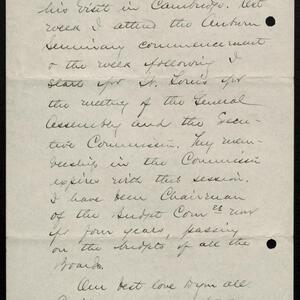 his visit in Cambridge. Next
week I attend the Auburn
Seminary commencement
& the week following I
start for St. Louis for
the meeting of the General
Assembly and the Execu-
tive Commission. My mem-
bership in the Commission
expires with this session.
I have been Chairman
of the Budget Com ee now
for four years, passing
on the budgets of all the
Boards.
Our best love to you all